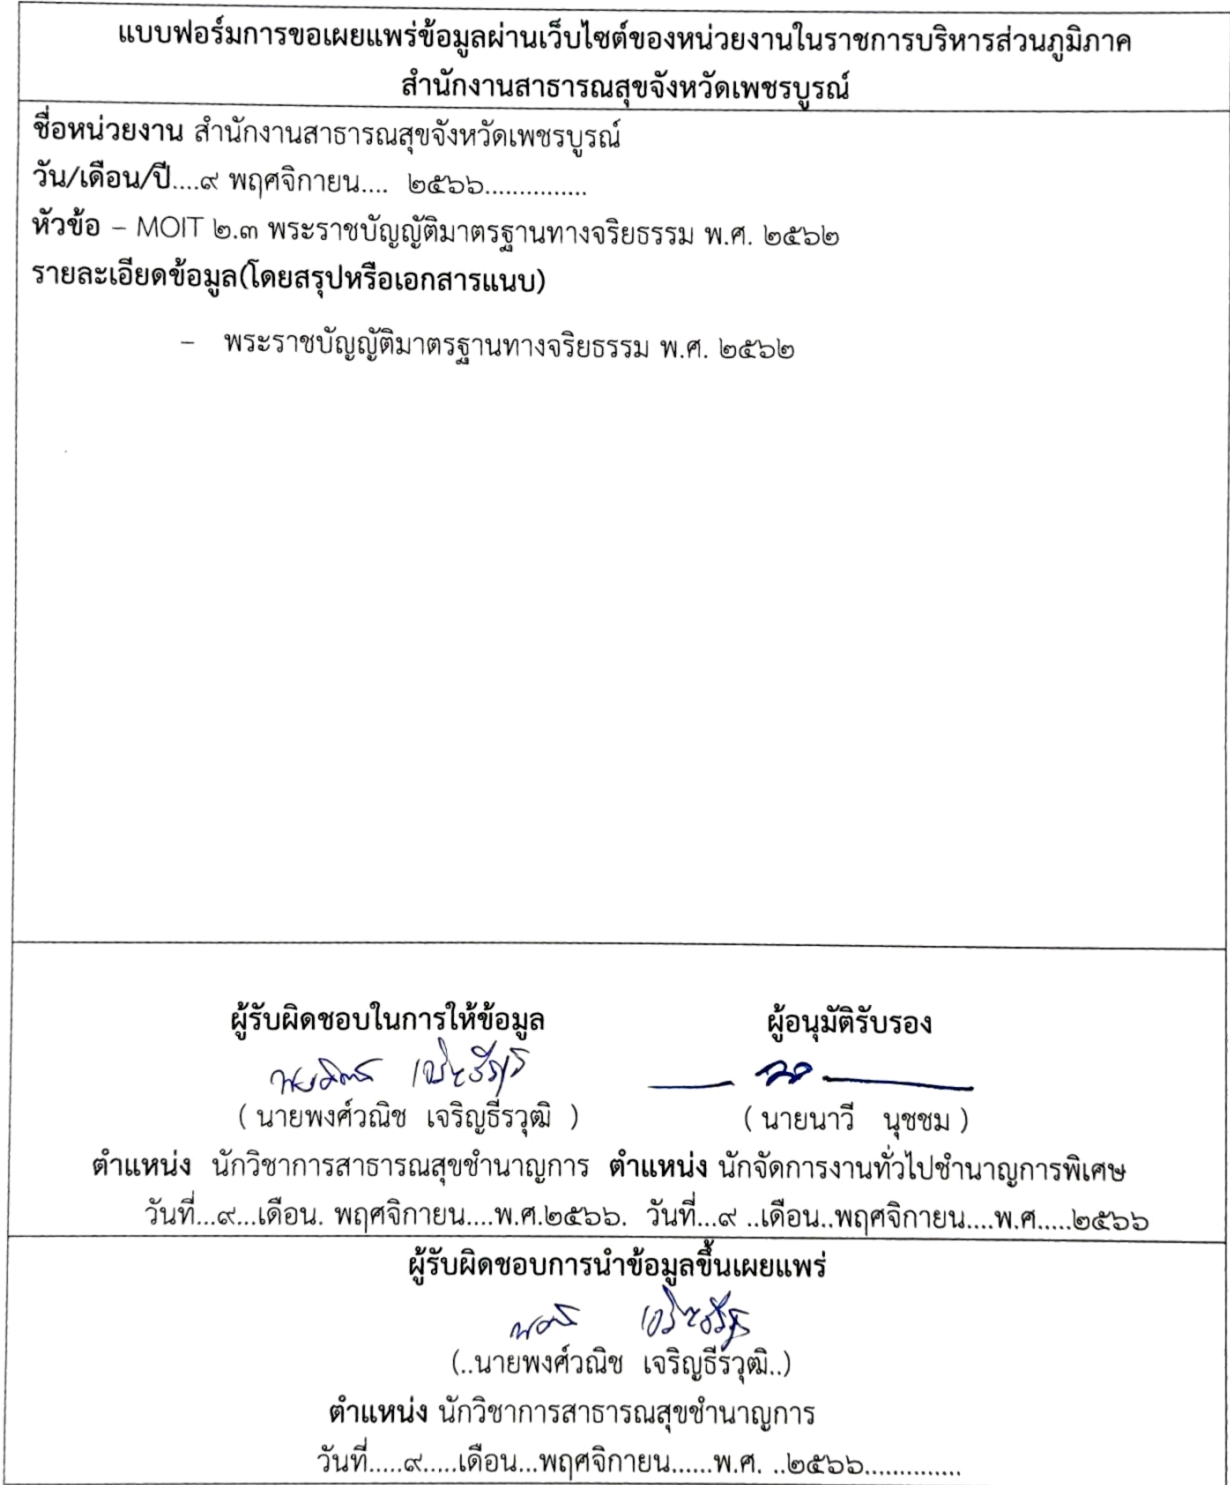 แบบฟอร์มการขอเผยแพร่ข้อมูลผ่านเว็บไซต์ของหน่วยงานในราชการบริหารส่วนภูมิภาค
สำนักงานสาธารณสุขจังหวัดเพชรบูรณ์
ชื่อหน่วยงาน สำนักงานสาธารณสุขจังหวัดเพชรบูรณ์
วัน/เดือน/ปี....๙ พฤศจิกายน.... ๒๕๖๖...............
หัวข้อ – MOIT ๒.๓ พระราชบัญญัติมาตรฐานทางจริยธรรม พ.ศ. ๒๕๖๒
รายละเอียดข้อมูล(โดยสรุปหรือเอกสารแนบ)
– พระราชบัญญัติมาตรฐานทางจริยธรรม พ.ศ. ๒๕๖๒
ผู้รับผิดชอบในการให้ข้อมูล ผู้อนุมัติรับรอง
( นายพงศ์วณิช เจริญธีรวุฒิ ) ( นายนาวี นุชชม )
ตำแหน่ง นักวิชาการสาธารณสุขชำนาญการ ตำแหน่ง นักจัดการงานทั่วไปชำนาญการพิเศษ
วันที่...๙...เดือน. พฤศจิกายน....พ.ศ.๒๕๖๖. วันที่...๙ ..เดือน..พฤศจิกายน....พ.ศ.....๒๕๖๖
ผู้รับผิดชอบการนำข้อมูลขึ้นเผยแพร่
(..นายพงศ์วณิช เจริญธีรวุฒิ..)
ตำแหน่ง นักวิชาการสาธารณสุขชำนาญการ
วันที่.....๙.....เดือน...พฤศจิกายน......พ.ศ. ..๒๕๖๖..............